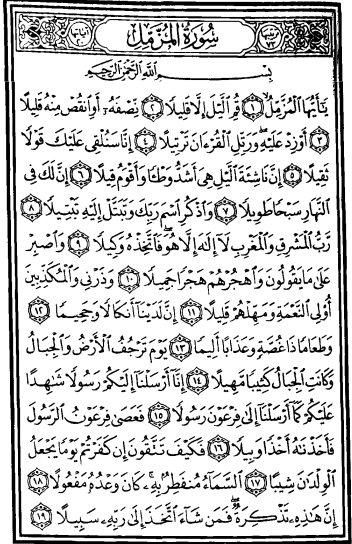 سُورَةُ المُزَّمِّل
بِسْمِ اللَّهِ الرَّحْمَٰنِ الرَّحِيمِ
يَٰٓأَيُّهَا ٱلْمُزَّمِّلُ ١ قُمِ ٱلَّيْلَ إِلَّا قَلِيلًا ٢ نِّصْفَهُۥٓ أَوِ ٱنقُصْ مِنْهُ قَلِيلًا
٣ أَوْ زِدْ عَلَيْهِ وَرَتِّلِ ٱلْقُرْءَانَ تَرْتِيلًا ٤ إِنَّا سَنُلْقِى عَلَيْكَ قَوْلًا
ثَقِيلًا ٥ إِنَّ نَاشِئَةَ ٱلَّيْلِ هِىَ أَشَدُّ وَطْـًٔا وَأَقْوَمُ قِيلًا ٦ إِنَّ لَكَ فِى
ٱلنَّهَارِ سَبْحًا طَوِيلًا ٧ وَٱذْكُرِ ٱسْمَ رَبِّكَ وَتَبَتَّلْ إِلَيْهِ تَبْتِيلًا ٨
رَّبُّ ٱلْمَشْرِقِ وَٱلْمَغْرِبِ لَآ إِلَٰهَ إِلَّا هُوَ فَٱتَّخِذْهُ وَكِيلًا ٩ وَٱصْبِرْ
عَلَىٰ مَا يَقُولُونَ وَٱهْجُرْهُمْ هَجْرًا جَمِيلًا ١٠ وَذَرْنِى وَٱلْمُكَذِّبِينَ
أُو۟لِى ٱلنَّعْمَةِ وَمَهِّلْهُمْ قَلِيلًا ١١ إِنَّ لَدَيْنَآ أَنكَالًا وَجَحِيمًا ١٢
وَطَعَامًا ذَا غُصَّةٍ وَعَذَابًا أَلِيمًا ١٣ يَوْمَ تَرْجُفُ ٱلْأَرْضُ وَٱلْجِبَالُ
وَكَانَتِ ٱلْجِبَالُ كَثِيبًا مَّهِيلًا ١٤ إِنَّآ أَرْسَلْنَآ إِلَيْكُمْ رَسُولًا شَٰهِدًا
عَلَيْكُمْ كَمَآ أَرْسَلْنَآ إِلَىٰ فِرْعَوْنَ رَسُولًا ١٥ فَعَصَىٰ فِرْعَوْنُ ٱلرَّسُولَ
فَأَخَذْنَٰهُ أَخْذًا وَبِيلًا ١٦ فَكَيْفَ تَتَّقُونَ إِن كَفَرْتُمْ يَوْمًا يَجْعَلُ
ٱلْوِلْدَٰنَ شِيبًا ١٧ ٱلسَّمَآءُ مُنفَطِرٌۢ بِهِۦ كَانَ وَعْدُهُۥ مَفْعُولًا ١٨
إِنَّ هَٰذِهِۦ تَذْكِرَةٌ فَمَن شَآءَ ٱتَّخَذَ إِلَىٰ رَبِّهِۦ سَبِيلًا ١٩